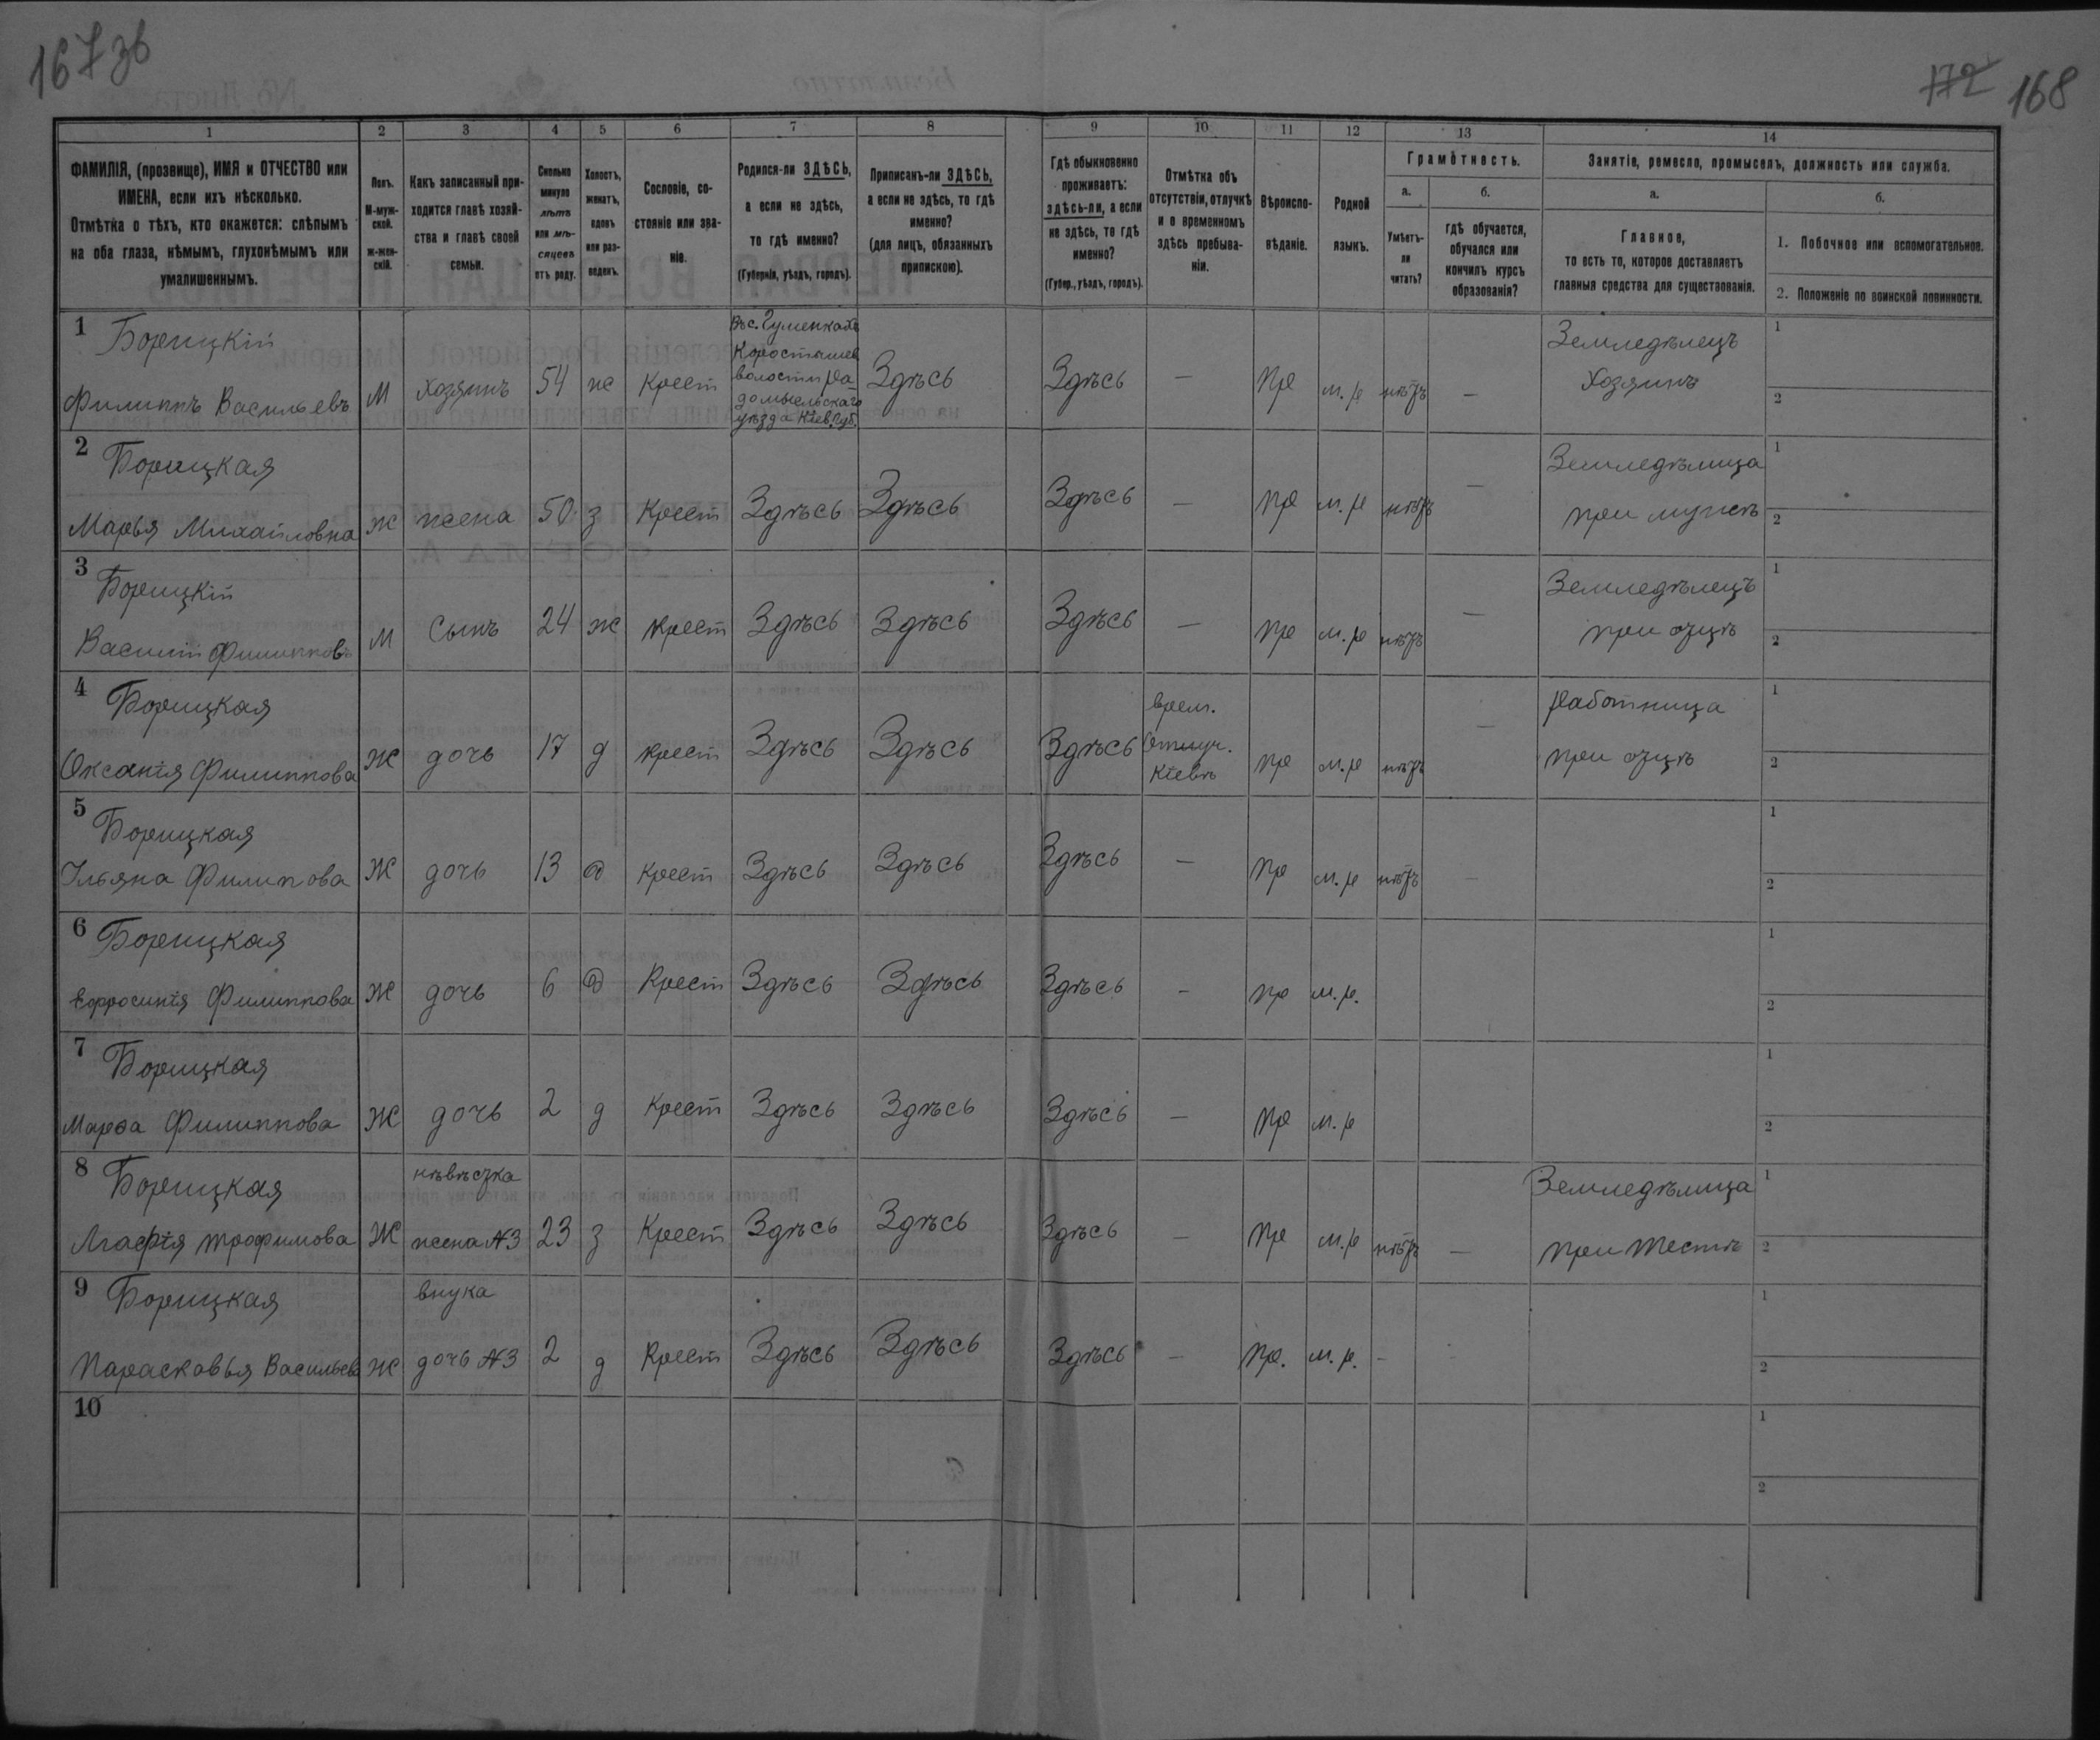 167 зв
172 168
1 2 3 4 5 6 7 8 9 10 11 12 13 14
ФАМИЛІЯ, (прозвище), ИМЯ и ОТЧЕСТВО или
ИМЕНА, если ихъ нѣсколько.
Отмѣтка о тѣхъ, кто окажется: слѣпымъ
на оба глаза, нѣмымъ, глухонѣмымъ или
умалишеннымъ.
Полъ.
М-муж-
ской.
ж-жен-
скій.
Какъ записанный при-
ходится главѣ хозяй-
ства и главѣ своей
семьи.
Сколько
минуло
лѣтъ
или мѣ-
сяцевъ
отъ роду.
Холостъ,
женатъ,
вдовъ
или раз-
веденъ.
Сословіе, со-
стояніе или зва-
ніе.
Родился-ли ЗДѢСЬ,
а если не здѣсь,
то гдѣ именно?
(Губернія, уѣздъ, городъ).
Приписанъ-ли ЗДѢСЬ,
а если не здѣсь, то гдѣ
именно?
(для лицъ, обязанныхъ
припискою).
Гдѣ обыкновенно
проживаетъ:
здѣсь-ли, а если
не здѣсь, то гдѣ
именно?
(Губер., уѣздъ, городъ).
Отмѣтка объ
отсутствіи, отлучкѣ
и о временномъ
здѣсь пребыва-
ніи.
Вѣроиспо-
вѣданіе.
Родной
языкъ.
Грамотность.
а.
Умѣетъ-
ли
читать?
б.
гдѣ обучается,
обучался или
кончилъ курсъ
образованія?
Занятіе, ремесло, промыселъ, должность или служба.
а.
Главное,
то есть то, которое доставляетъ
главныя средства для существованія.
б.
1. Побочное или вспомогательное.
2. Положеніе по воинской повинности.
1 Борицкій
Филиппъ Васильевъ М Хозяинъ 54 ж Крест
Въ с. Гуменкахъ
Коростышев
волости Ра
домысльскаго
уѣзда Кіев. Губ.
Здѣсь Здѣсь — Пр м. р нѣтъ —
Земледѣлецъ
Хозяинъ
1
2
2 Борицкая
Марья Михайловна Ж жена 50 з Крест Здѣсь Здѣсь Здѣсь — Пр м. р нѣтъ —
Земледѣлица
при мужѣ
1
2
3 Борицкій
Василій Филипповъ М Сынъ 24 ж Крест Здѣсь Здѣсь Здѣсь — Пр м. р нѣтъ —
Земледѣлецъ
при отцѣ
1
2
4 Борицкая
Оксанія Филиппова Ж дочь 17 д Крест Здѣсь Здѣсь Здѣсь
врем.
Отлуч.
Кіевъ
Пр м. р нѣтъ —
Работница
при отцѣ
1
2
5 Борицкая
Ульяна Филипова Ж дочь 13 д Крест Здѣсь Здѣсь Здѣсь — Пр м. р нѣтъ —
1
2
6 Борицкая
Ефросинія Филиппова Ж дочь 6 д Крест Здѣсь Здѣсь Здѣсь — Пр м. р.
1
2
7 Борицкая
Марѳа Филиппова Ж дочь 2 д Крест Здѣсь Здѣсь Здѣсь — Пр м. р
1
2
8 Борицкая
Агафія Трофимова Ж
нѣвѣстка
жена №3
23 з Крест Здѣсь Здѣсь Здѣсь — Пр м. р нѣтъ —
Земледѣлица
при тестѣ
1
2
9 Борицкая
Парасковья Васильева Ж
внука
дочь №3
2 д Крест Здѣсь Здѣсь Здѣсь — Пр. м. р. —
1
2
10
1
2